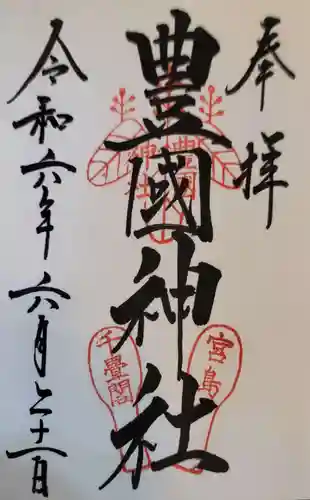 奉拝
豊國神社
令和六年六月二十一日
豊國神社
宮島
千畳閣